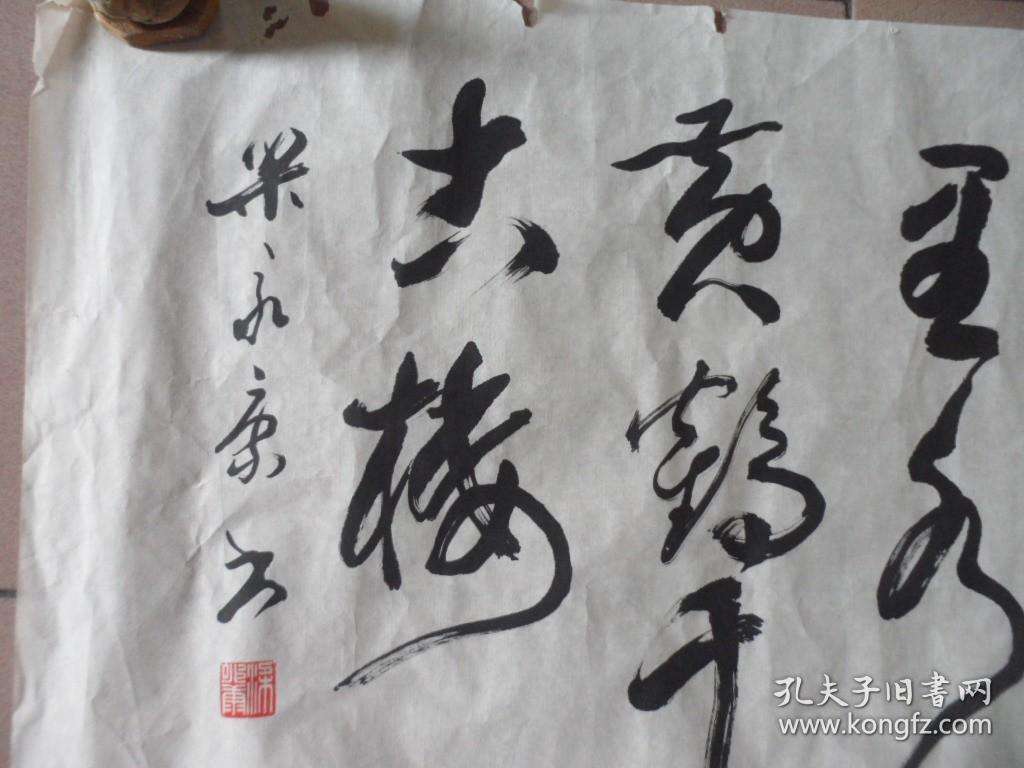 里水
黄鹤千
古楼
梁永康书
孔夫子旧书网
www.kongfz.com